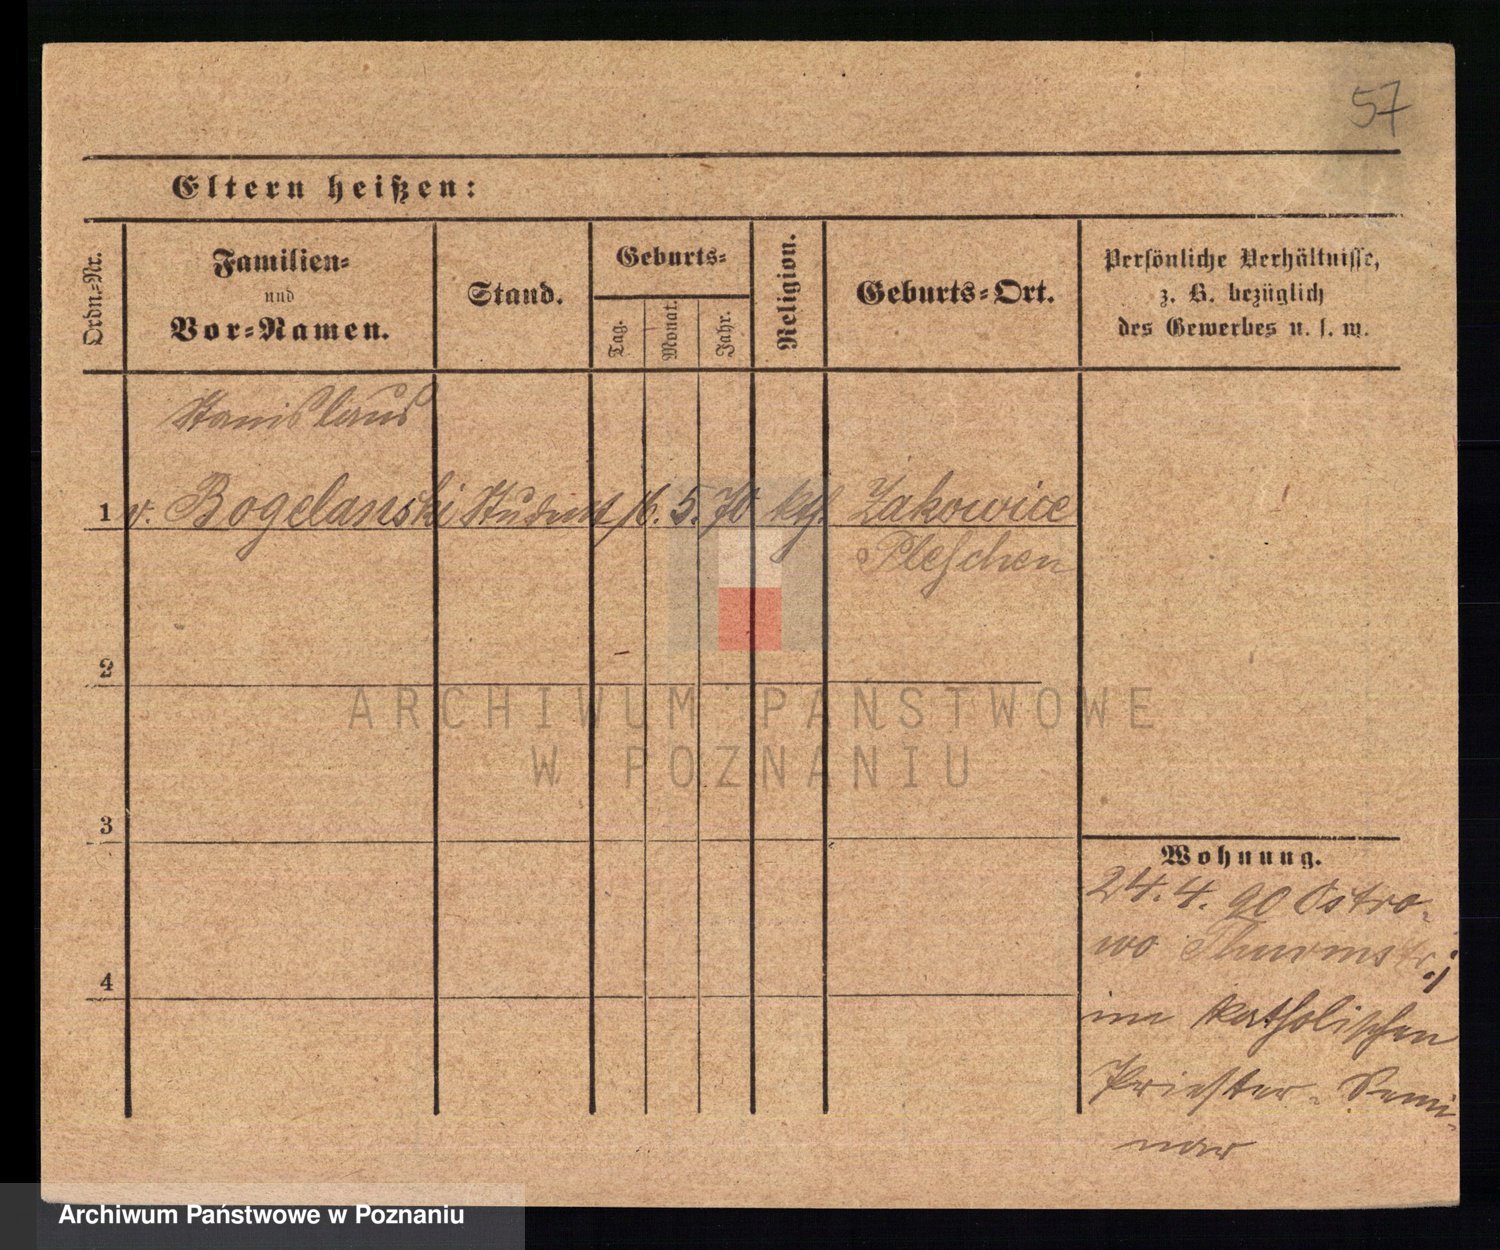 57
Eltern heißen:
Ordn.-Nr.
Familien-
und
Vor-Namen.
Stand.
Geburts-
Tag.
Monat.
Jahr.
Religion.
Geburts-Ort.
Persönliche Verhältnisse,
z. B. bezüglich
des Gewerbes u. s. w.
Stanislaus
1 v. Bogelanski Student 16. 5. 70 kth. Zakowice
Pleschen
2
3
4
Wohnung.
24. 4. 90 Ostro-
wo Thurmstr.;
im katholischen
Priester-Semi-
nar
ARCHIWUM PAŃSTWOWE
W POZNANIU
Archiwum Państwowe w Poznaniu